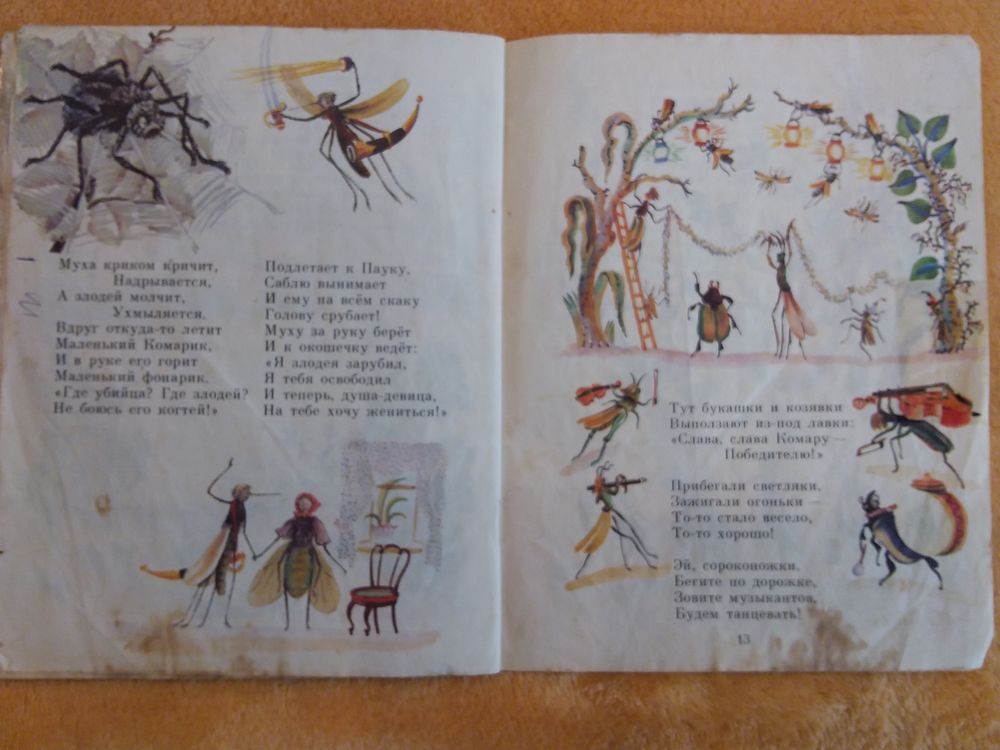 Муха криком кричит,
Надрывается,
А злодей молчит,
Ухмыляется.
Вдруг откуда-то летит
Маленький Комарик,
И в руке его горит
Маленький фонарик.
«Где убийца? Где злодей?
Не боюсь его когтей!»
Подлетает к Пауку,
Саблю вынимает
И ему на всём скаку
Голову срубает!
Муху за руку берёт
И к окошечку ведёт:
«Я злодея зарубил,
Я тебя освободил
И теперь, душа-девица,
На тебе хочу жениться!»
Тут букашки и козявки
Выползают из-под лавки:
«Слава, слава Комару —
Победителю!»
Прибегали светляки,
Зажигали огоньки —
То-то стало весело,
То-то хорошо!
Эй, сороконожки,
Бегите по дорожке,
Зовите музыкантов,
Будем танцевать!
13